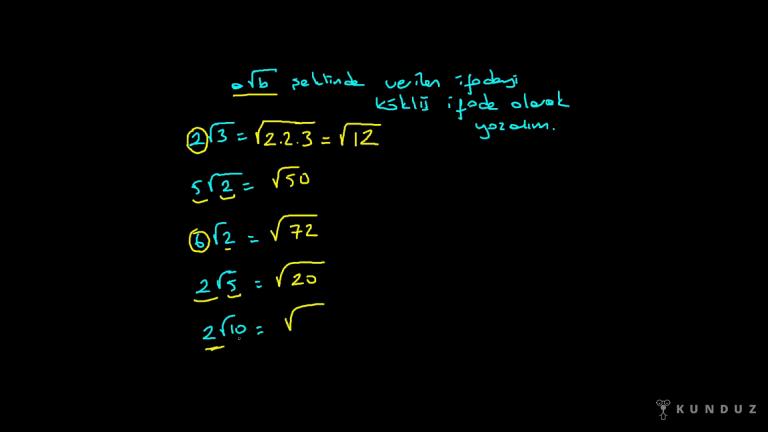 a√b şeklinde verilen ifadeyi
köklü ifade olarak
yazalım.
2√3 = √2.2.3 = √12
5√2 = √50
6√2 = √72
2√5 = √20
2√10 = √
KUNDUZ